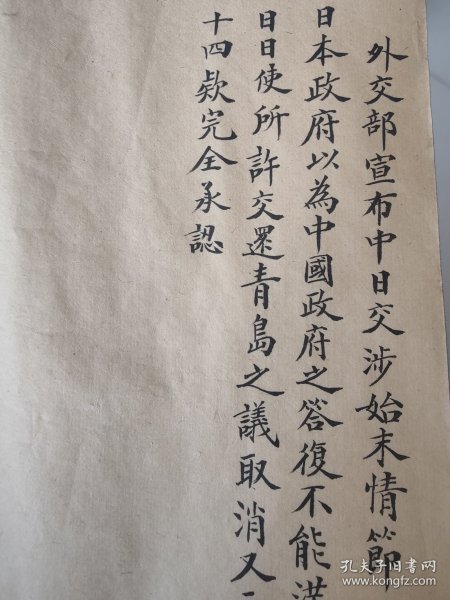 外交部宣布中日交涉始末情節
日本政府以為中國政府之答復不能滿
日日使所許交還青島之議取消又
十四欵完全承認
孔夫子旧书网
www.kongfz.com